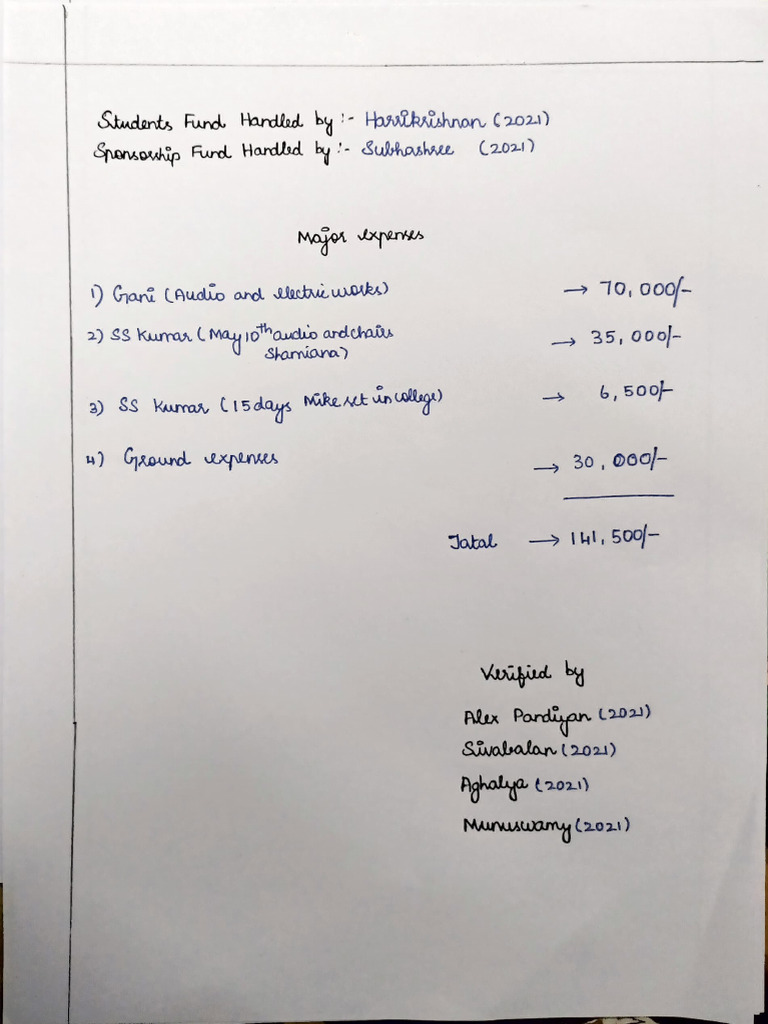 Students Fund Handled by :- Harrikrishnan (2021)
Sponsorship Fund Handled by :- Subhashree (2021)
Major expenses
1) Gani (Audio and electric works) → 70,000/-
2) SS Kumar (May 10th audio and chairs → 35,000/-
Shamiana)
3) SS Kumar (15 days Mike set in college) → 6,500/-
4) Ground expenses → 30,000/-
Total → 141,500/-
Verified by
Alex Pandiyan (2021)
Sivabalan (2021)
Aghalya (2021)
Munuswamy (2021)